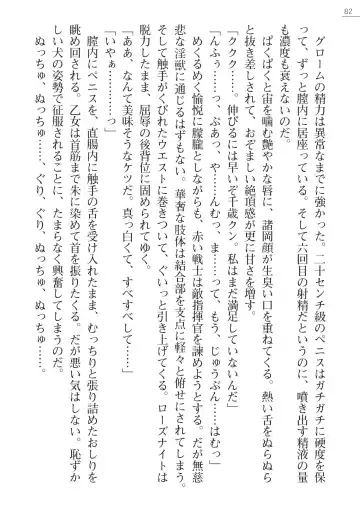 82
グロームの精力は異常なまでに強かった。二十センチ級のペニスはガチガチに硬度を保
って、ずっと膣内に居座っている。そして六回目の射精だというのに、噴き出す精液の量
も濃度も衰えないのだ。
ぱくぱくと宙を噛む艶やかな唇に、諸岡が生臭い口を重ねてくる。熱い舌をぬらぬら
と抜き差しされて、おぞましい絶頂感が更に甘さを増す。
「ククク……。伸びるには早いぞ千歳クン。私はまだ満足していないんだ」
「んふぅ……っ、ぷあっ、や……んむっ、ま……って、もう、じゅうぶん……はむっ」
めくるめく愉悦に朦朧としながらも、赤い戦士は敵指揮官を諫めようとする。だが無慈
悲な淫獣に通じるはずもない。華奢な肢体は結合部を支点に軽々と俯せにされてしまう。
そして触手がくびれたウエストに巻きついて、ぐいっと引き上げてくる。ローズナイトは
脱力したまま、屈辱の後背位に固められてゆく。
「ああ、なんて美味そうなケツだ。真っ白くて、すべすべして……」
「いやぁ…………」
膣内にペニスを、直腸内に触手の舌を受け入れたまま、むっちりと張り詰めたおしりを
眺め回される。乙女は首筋まで朱に染めて首を振りたくる。だが悪い気はしない。恥ずか
しい犬の姿勢で征服されることに、たまらなく興奮してしまうのだ。
ぬっちゅ、ぬっちゅ、ぬっちゅ……、ぐり、ぐり、ぬっちゅ、ぬっちゅ……。